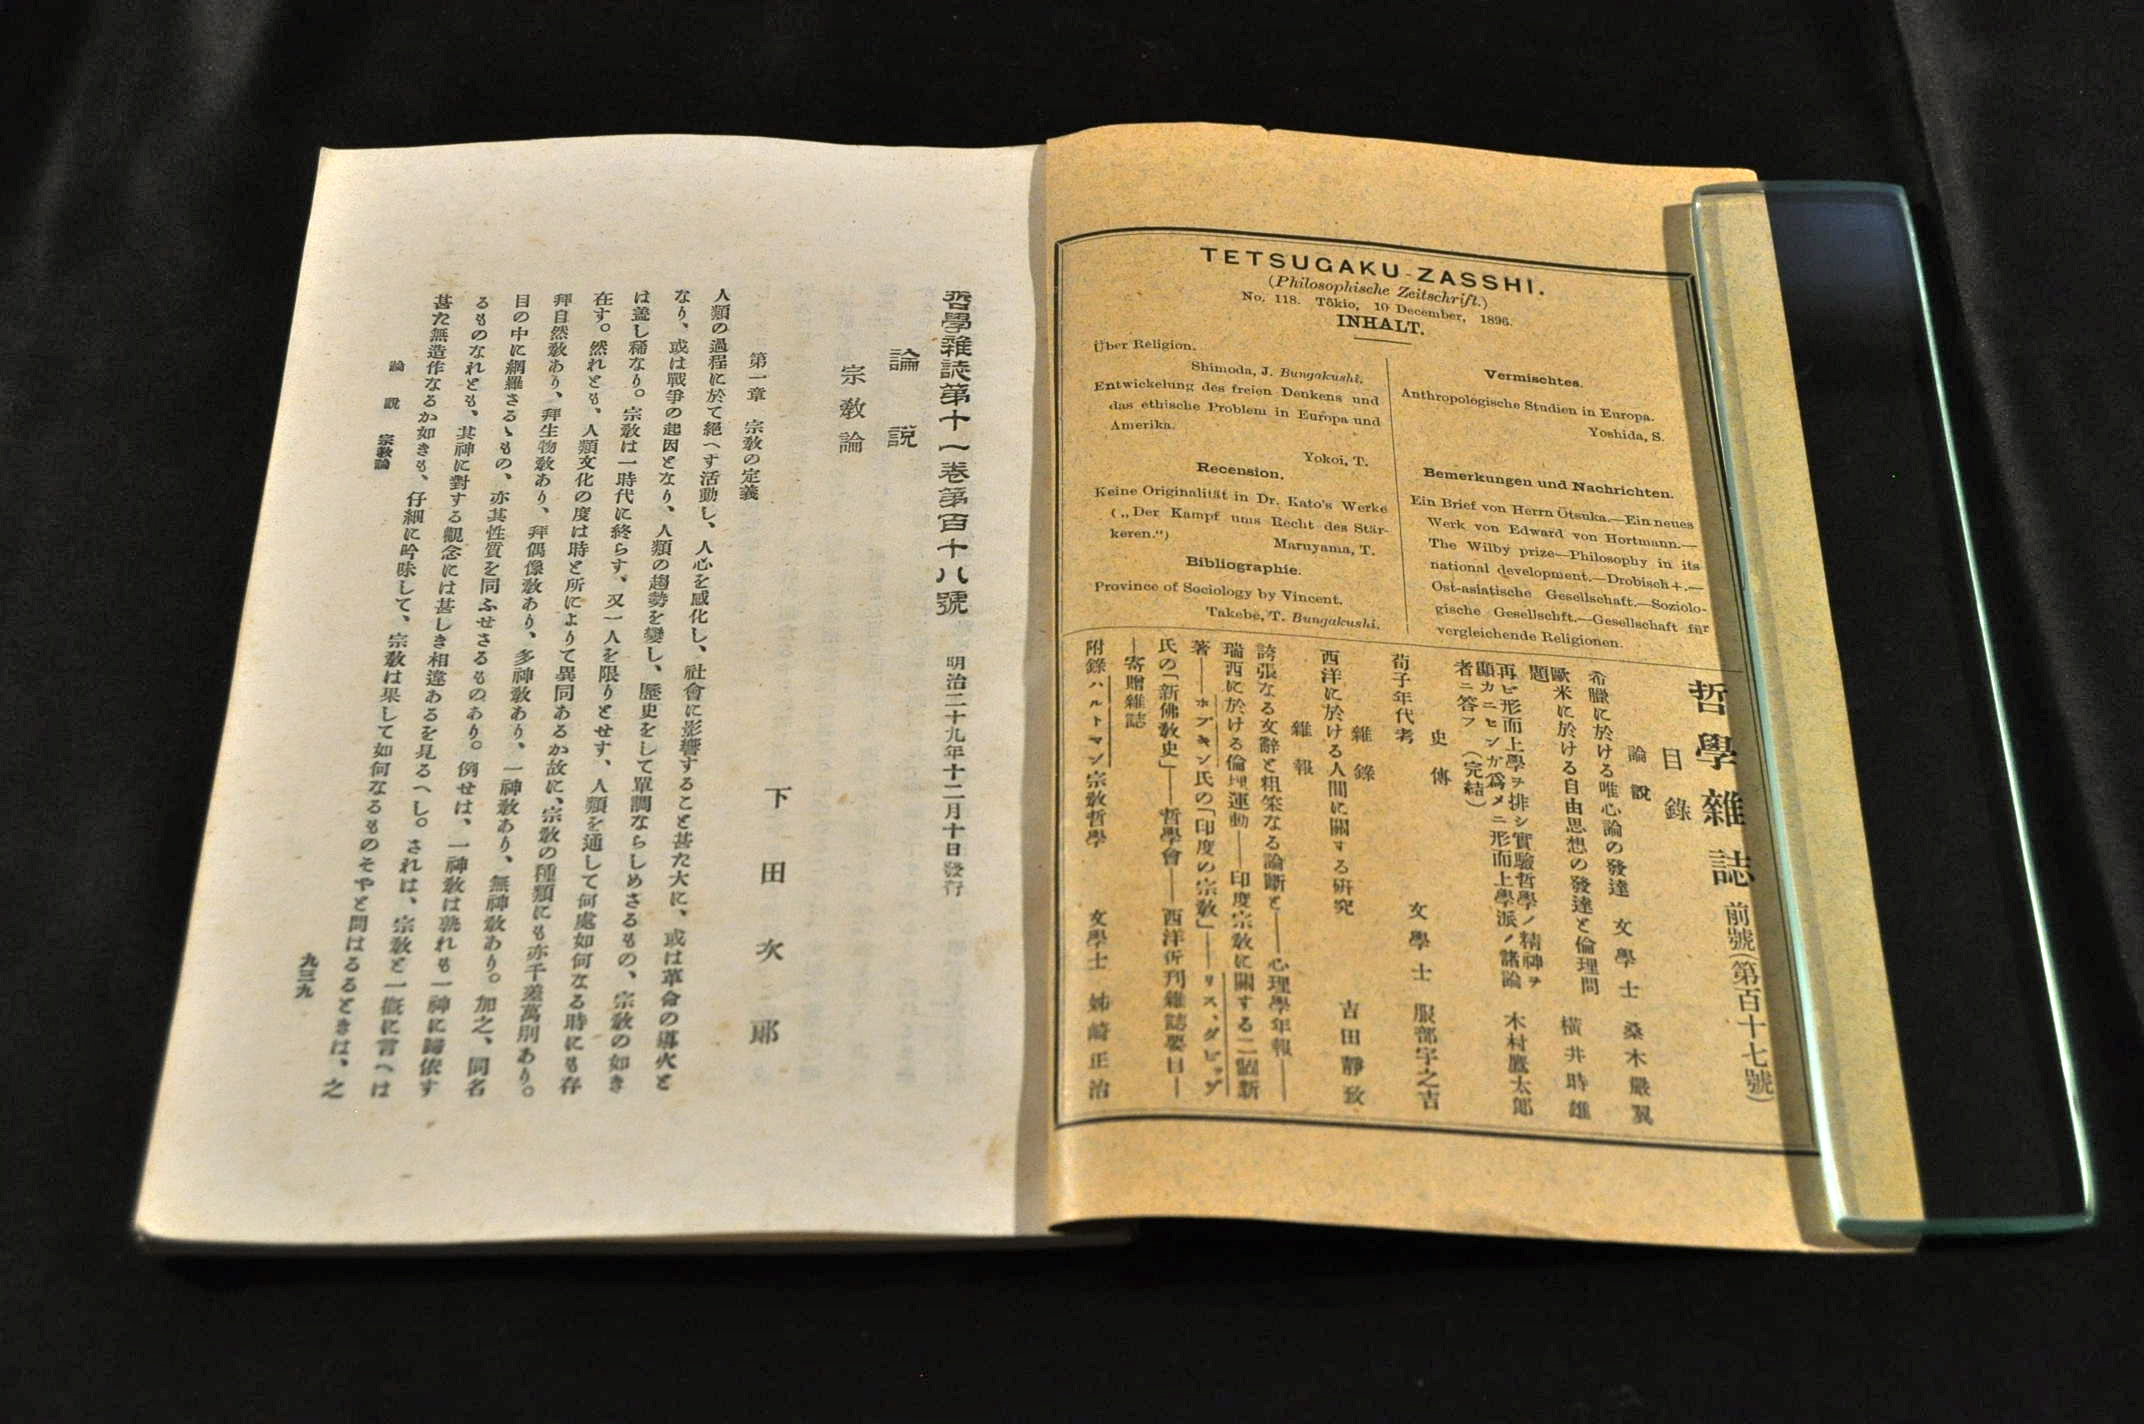 TETSUGAKU-ZASSHI.
(Philosophische Zeitschrift.)
No. 118. Tôkio, 10 December, 1896.
INHALT.
Über Religion.
Shimoda, J. Bungakushi.
Entwickelung des freien Denkens und
das ethische Problem in Europa und
Amerika.
Yokoi, T.
Recension.
Keine Originalität in Dr. Kato's Werke
(„Der Kampf ums Recht des Stär-
keren.“)
Maruyama, T.
Bibliographie.
Province of Sociology by Vincent.
Takebe, T. Bungakushi.
Vermischtes.
Anthropologische Studien in Europa.
Yoshida, S.
Bemerkungen und Nachrichten.
Ein Brief von Herrn Ōtsuka.—Ein neues
Werk von Edward von Hortmann.—
The Wilby prize—Philosophy in its
national development.—Drobisch+.—
Ost-asiatische Gesellschaft.—Soziolo-
gische Gesellschft.—Gesellschaft für
vergleichende Religionen.
哲學雜誌 前號(第百十七號)
目錄
論說
希臘に於ける唯心論の發達 文學士 桑木嚴翼
歐米に於ける自由思想の發達と倫理問
題 橫井時雄
再ビ形而上學ヲ排シ實驗哲學ノ精神ヲ
顯カニセンガ爲メニ形而上學派ノ諸論
者ニ答フ (完結) 木村鷹太郎
史傳
荀子年代考 文學士 服部宇之吉
雜錄
西洋に於ける人間に關する硏究 吉田靜致
雜報
誇張なる文辭と粗笨なる論斷と——心理學年報——
瑞西に於ける倫理運動——印度宗敎に關する二個新
著——ホプキン氏の「印度の宗敎」——リス、ダビッヅ
氏の「新佛敎史」——哲學會——西洋新刊雜誌要目—
—寄贈雜誌
附錄 ハルトマン宗敎哲學 文學士 姊崎正治
哲學雜誌第十一卷第百十八號 明治二十九年十二月十日發行
論說
宗敎論
下田次郞
第一章 宗敎の定義
人類の過程に於て絕へす活動し、人心を感化し、社會に影響すること甚た大に、或は革命の導火と
なり、或は戰爭の起因となり、人類の趨勢を變し、歷史をして單調ならしめさるもの、宗敎の如き
は蓋し稀なり。宗敎は一時代に終らす、又一人を限りとせす、人類を通して何處如何なる時にも存
在す。然れとも、人類文化の度は時と所によりて異同あるか故に、宗敎の種類にも亦千差萬別あり。
拜自然敎あり、拜生物敎あり、拜偶像敎あり、多神敎あり、一神敎あり、無神敎あり。加之、同名
目の中に網羅さるゝもの、亦其性質を同ふせさるものあり。例せは、一神敎は孰れも一神に歸依す
るものなれとも、其神に對する觀念には甚しき相違あるを見るへし。されは、宗敎と一槪に言へは
甚た無造作なるか如きも、仔細に吟味して、宗敎は果して如何なるものそやと問はるるときは、之
論說 宗敎論
九三九